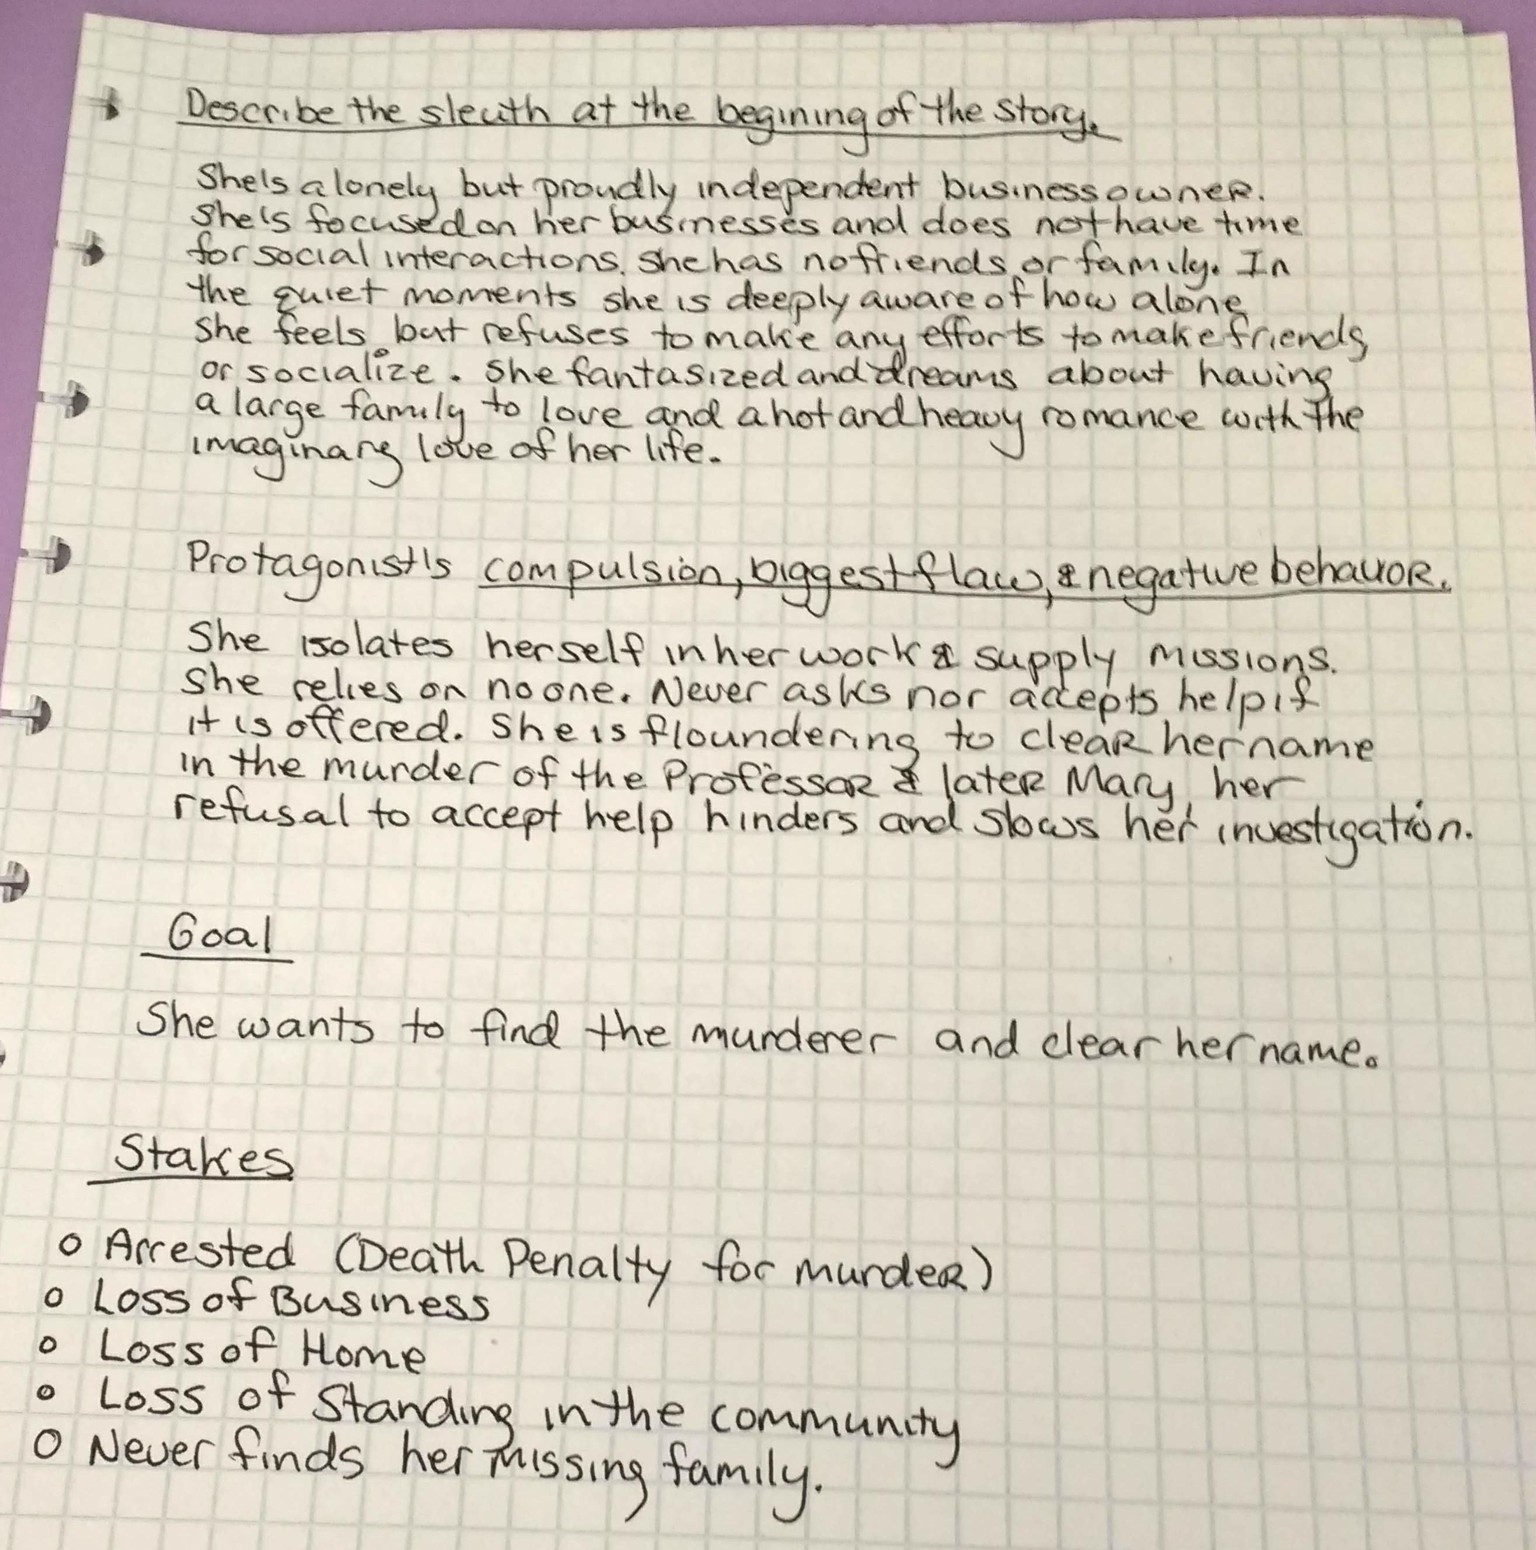 Describe the sleuth at the begining of the story.
She's a lonely but proudly independent business owner.
She's focused on her businesses and does not have time
for social interactions. She has no friends or family. In
the quiet moments she is deeply aware of how alone
she feels, but refuses to make any efforts to make friends
or socialize. She fantasized and dreams about having
a large family to love and a hot and heavy romance with the
imaginary love of her life.
Protagonist's compulsion, biggest flaw, & negative behavior.
She isolates herself in her work & supply missions.
She relies on no one. Never asks nor accepts help if
it is offered. She is floundering to clear her name
in the murder of the Professor & later Mary, her
refusal to accept help hinders and slows her investigation.
Goal
She wants to find the murderer and clear her name.
Stakes
o Arrested (Death Penalty for murder)
o Loss of Business
o Loss of Home
o Loss of Standing in the community
o Never finds her missing family.